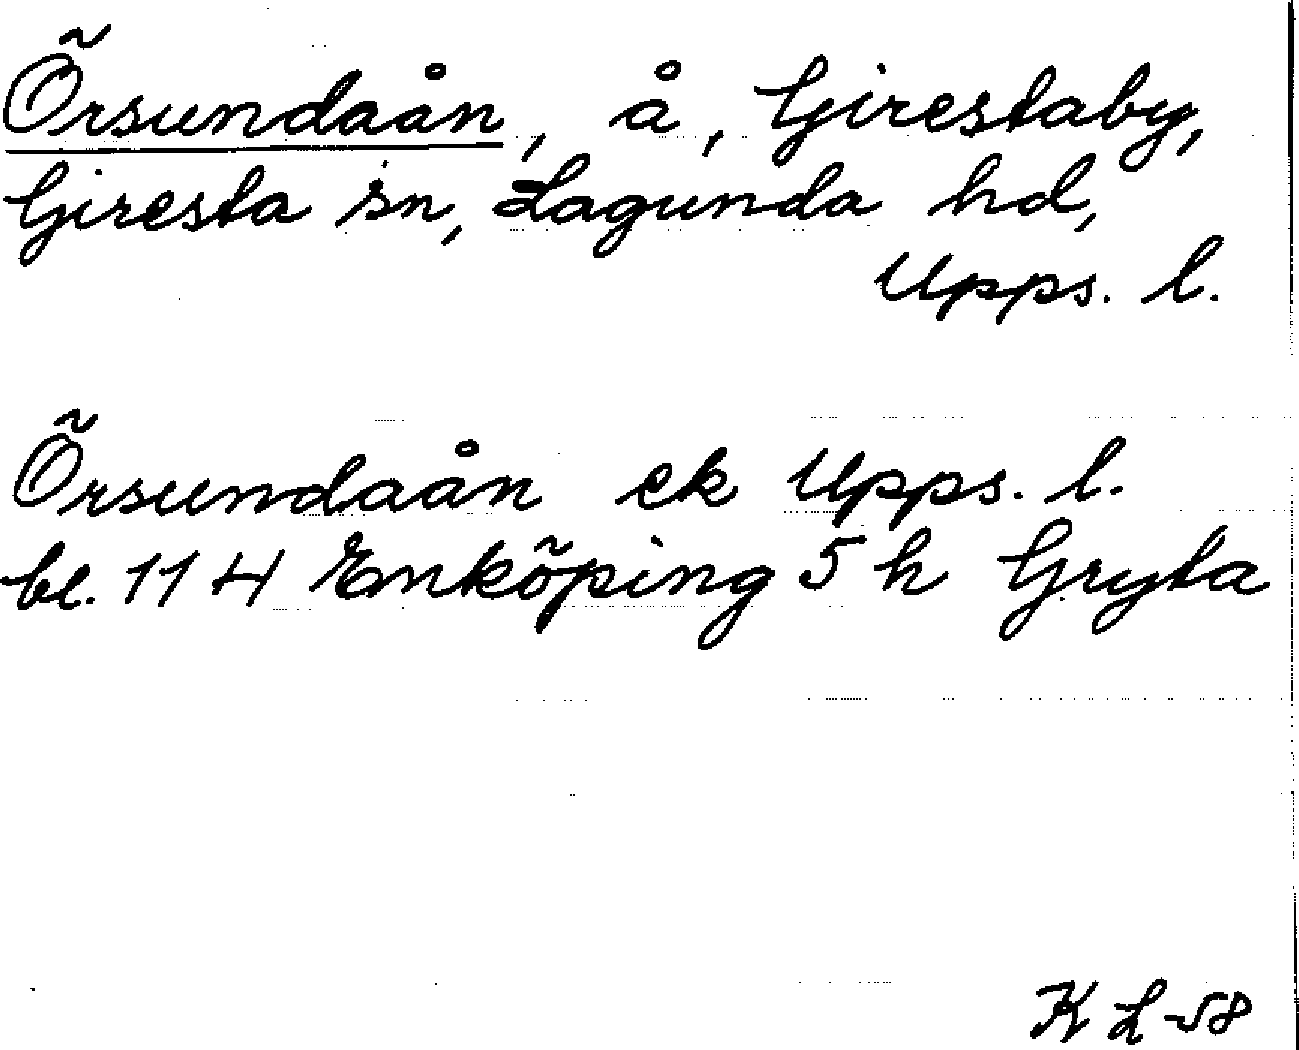 Örsundaån, å, Girestaby,
Giresta sn, Lagunda hd,
Upps. l.
Örsundaån ek Upps. l.
bl. 11 H Enköping 5 h Gryta
K L-58